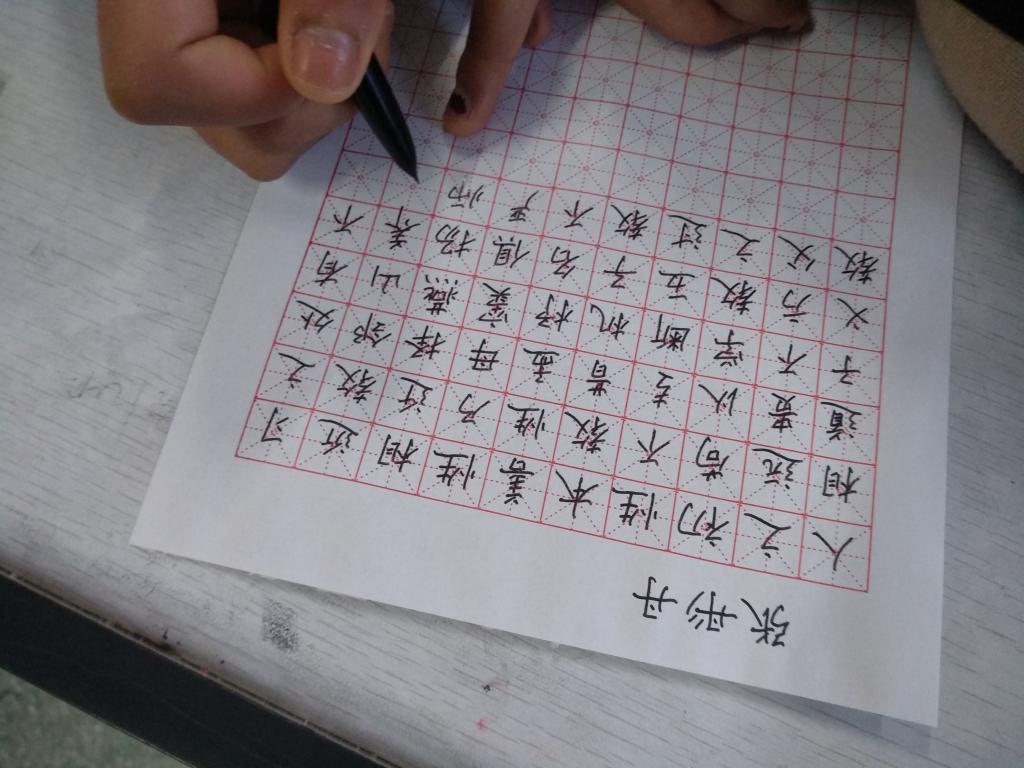 张彤丹
人之初性本善性相近习
相远苟不教性乃迁教之
道贵以专昔孟母择邻处
子不学断机杼窦燕山有
义方教五子名俱扬养不
教父之过教不严师